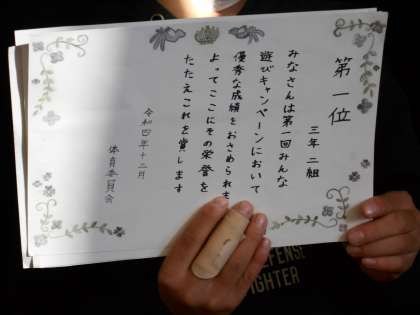 第一位
三年二組
みなさんは第一回みんな
遊びキャンペーンにおいて
優秀な成績をおさめられま
よってここにその栄誉を
たたえこれを賞します
令和四年十二月
体育委員会
DEFENSE
FIGHTER